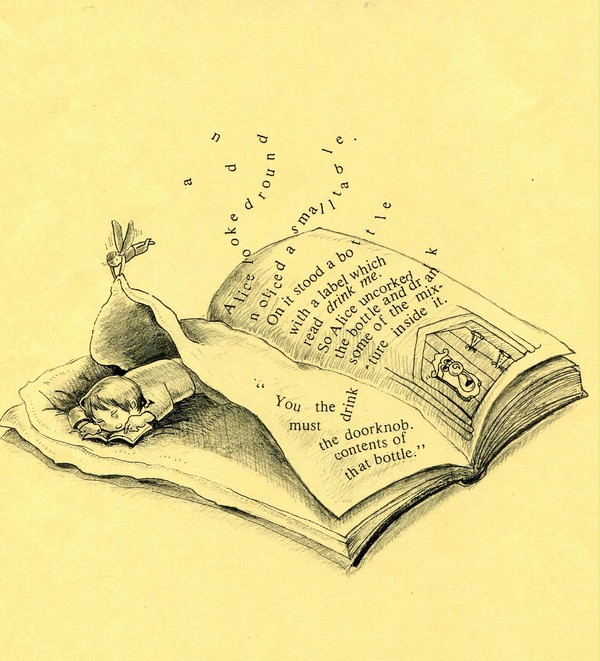 Alice looked round and
noticed a small table.
On it stood a bottle
with a label which
read drink me.
So Alice uncorked
the bottle and drank
some of the mix-
ture inside it.
“You the
must drink
the doorknob.
contents of
that bottle.”